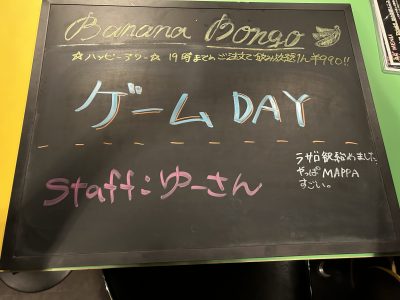 Banana Bongo
☆ハッピーアワー☆ 19時までのご注文で飲み放題1h ¥990!!
ゲーム DAY
Staff: ゆーさん
ラザロ観始めました
やっぱ MAPPA
すごい。